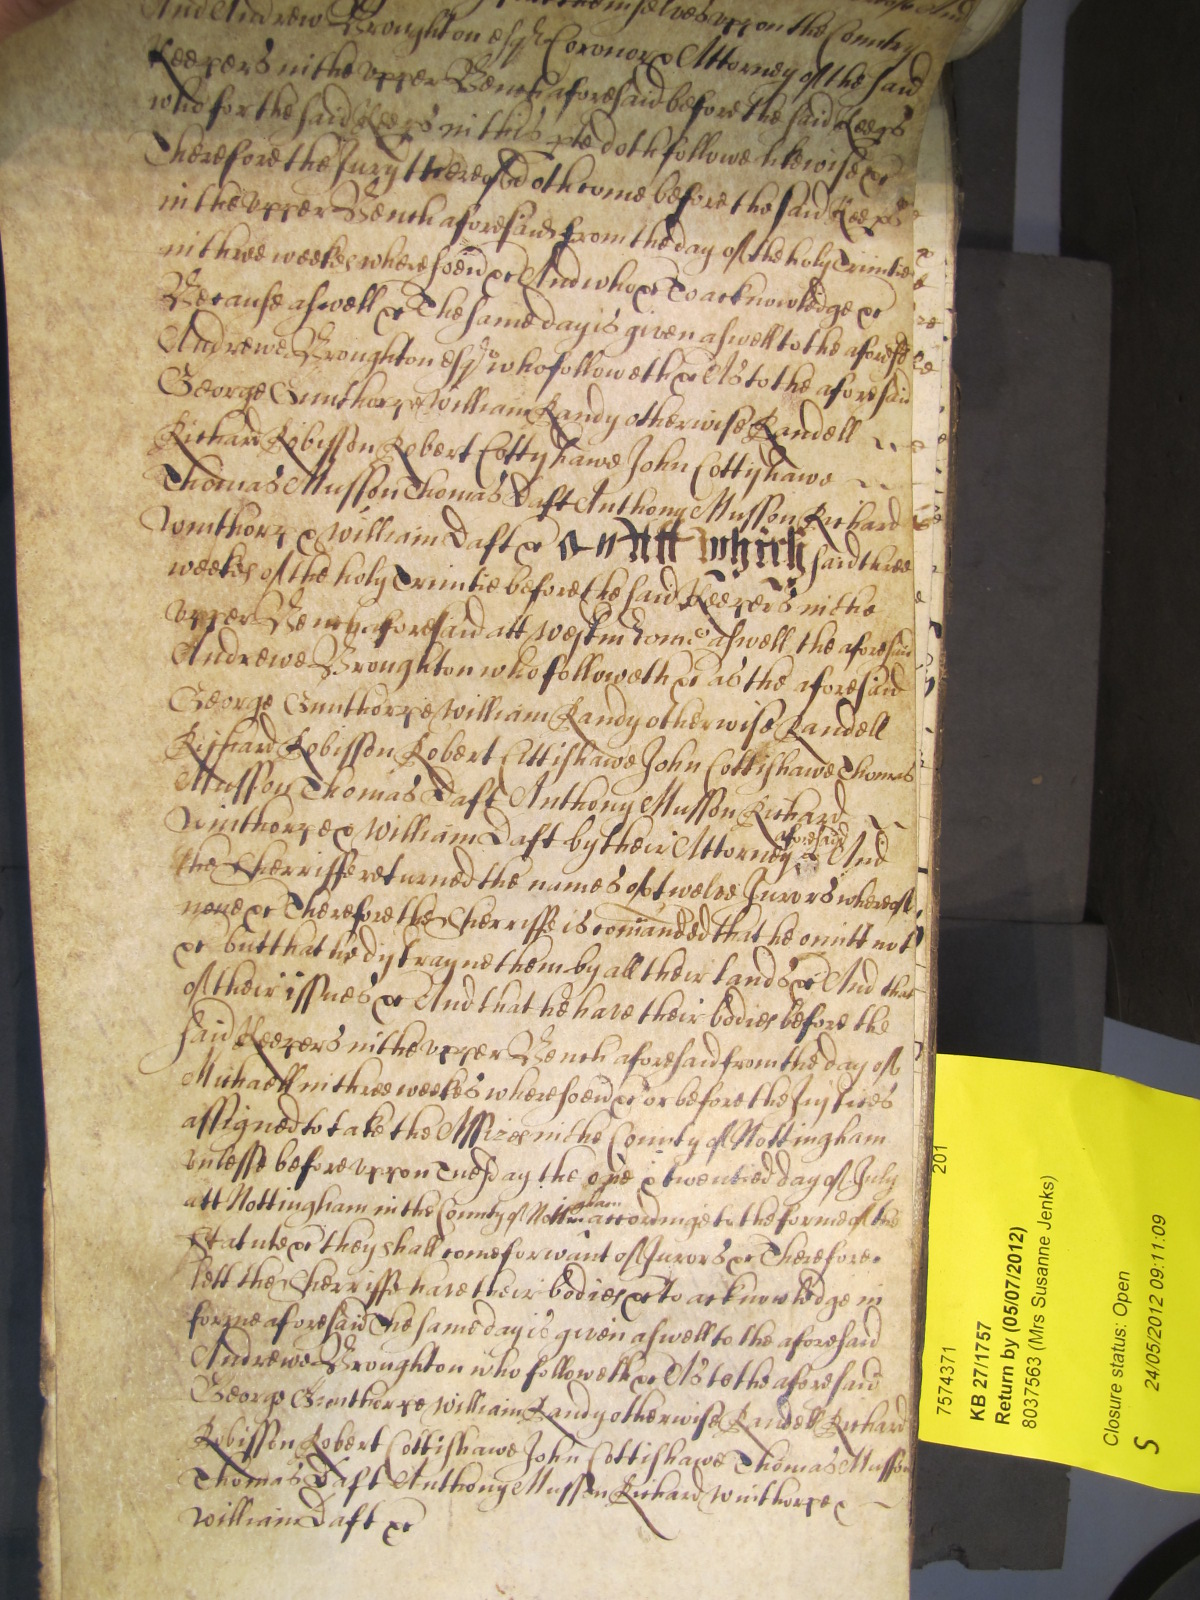 themselves uppon the Country
And Andrew Broughton esqr Coronor & Attorney of the said
Keepers in the upper Bench aforesaid before the said Keeps
who for the said Keeps in this pte doth followe likewise &c
Therefore the Jury thereof doth come before the said Keeps
in the upper Bench aforesaid from the day of the holy Trinitie
in three weekes wheresoeu &c And who &c To acknowledge &c
Because aswell &c The same day is given aswell to the aforesd
Andrewe Broughton esqr who followeth &c As to the aforesaid
George Gunthorpe William Randy otherwise Randell
Richard Robisson Robert Cottyshawe John Cottishawe
Thomas Musson Thomas Daft Anthony Musson Richard
Winthorp & William Daft &c Att which said three
weekes of the holy Trinitie before the said Keepers in the
upper Bench aforesaid att Westm come aswell the aforesaid
Andrewe Broughton who followeth &c as the aforesaid
George Gunthorpe William Randy otherwise Randell
Richard Robisson Robert Cottishawe John Cottishawe Thomas
Musson Thomas Daft Anthony Musson Richard
Winthorpe & William Daft by their Attorney aforesaid &c And
the Sherriffe returned the names of twelve Jurors whereof
none &c Therefore the Sherriffe is comanded that he omitt not
&c but that he distrayne them by all their lands &c And that
of their issues &c And that he have their bodies before the
said Keepers in the upper Bench aforesaid from the day of
Michaell in three weekes wheresoeu &c or before the Justices
assigned to take the Assizes in the County of Nottingham
unlesse before uppon Tuesday the one & twentied day of July
att Nottingham in the County of Nottingham accordinge to the forme of the
Statute &c they shall come for want of Jurors &c Therefore
lett the Sherriffe have their bodies &c to acknowledge in
forme aforesaid The same day is given aswell to the aforesaid
Andrewe Broughton who followeth &c As to the aforesaid
George Gunthorpe William Randy otherwise Randell Richard
Robisson Robert Cottishawe John Cottishawe Thomas Musson
Thomas Daft Anthony Musson Richard Winthorpe &
William Daft &c
201
7574371
KB 27/1757
Return by (05/07/2012)
8037563 (Mrs Susanne Jenks)
Closure status: Open
S 24/05/2012 09:11:09